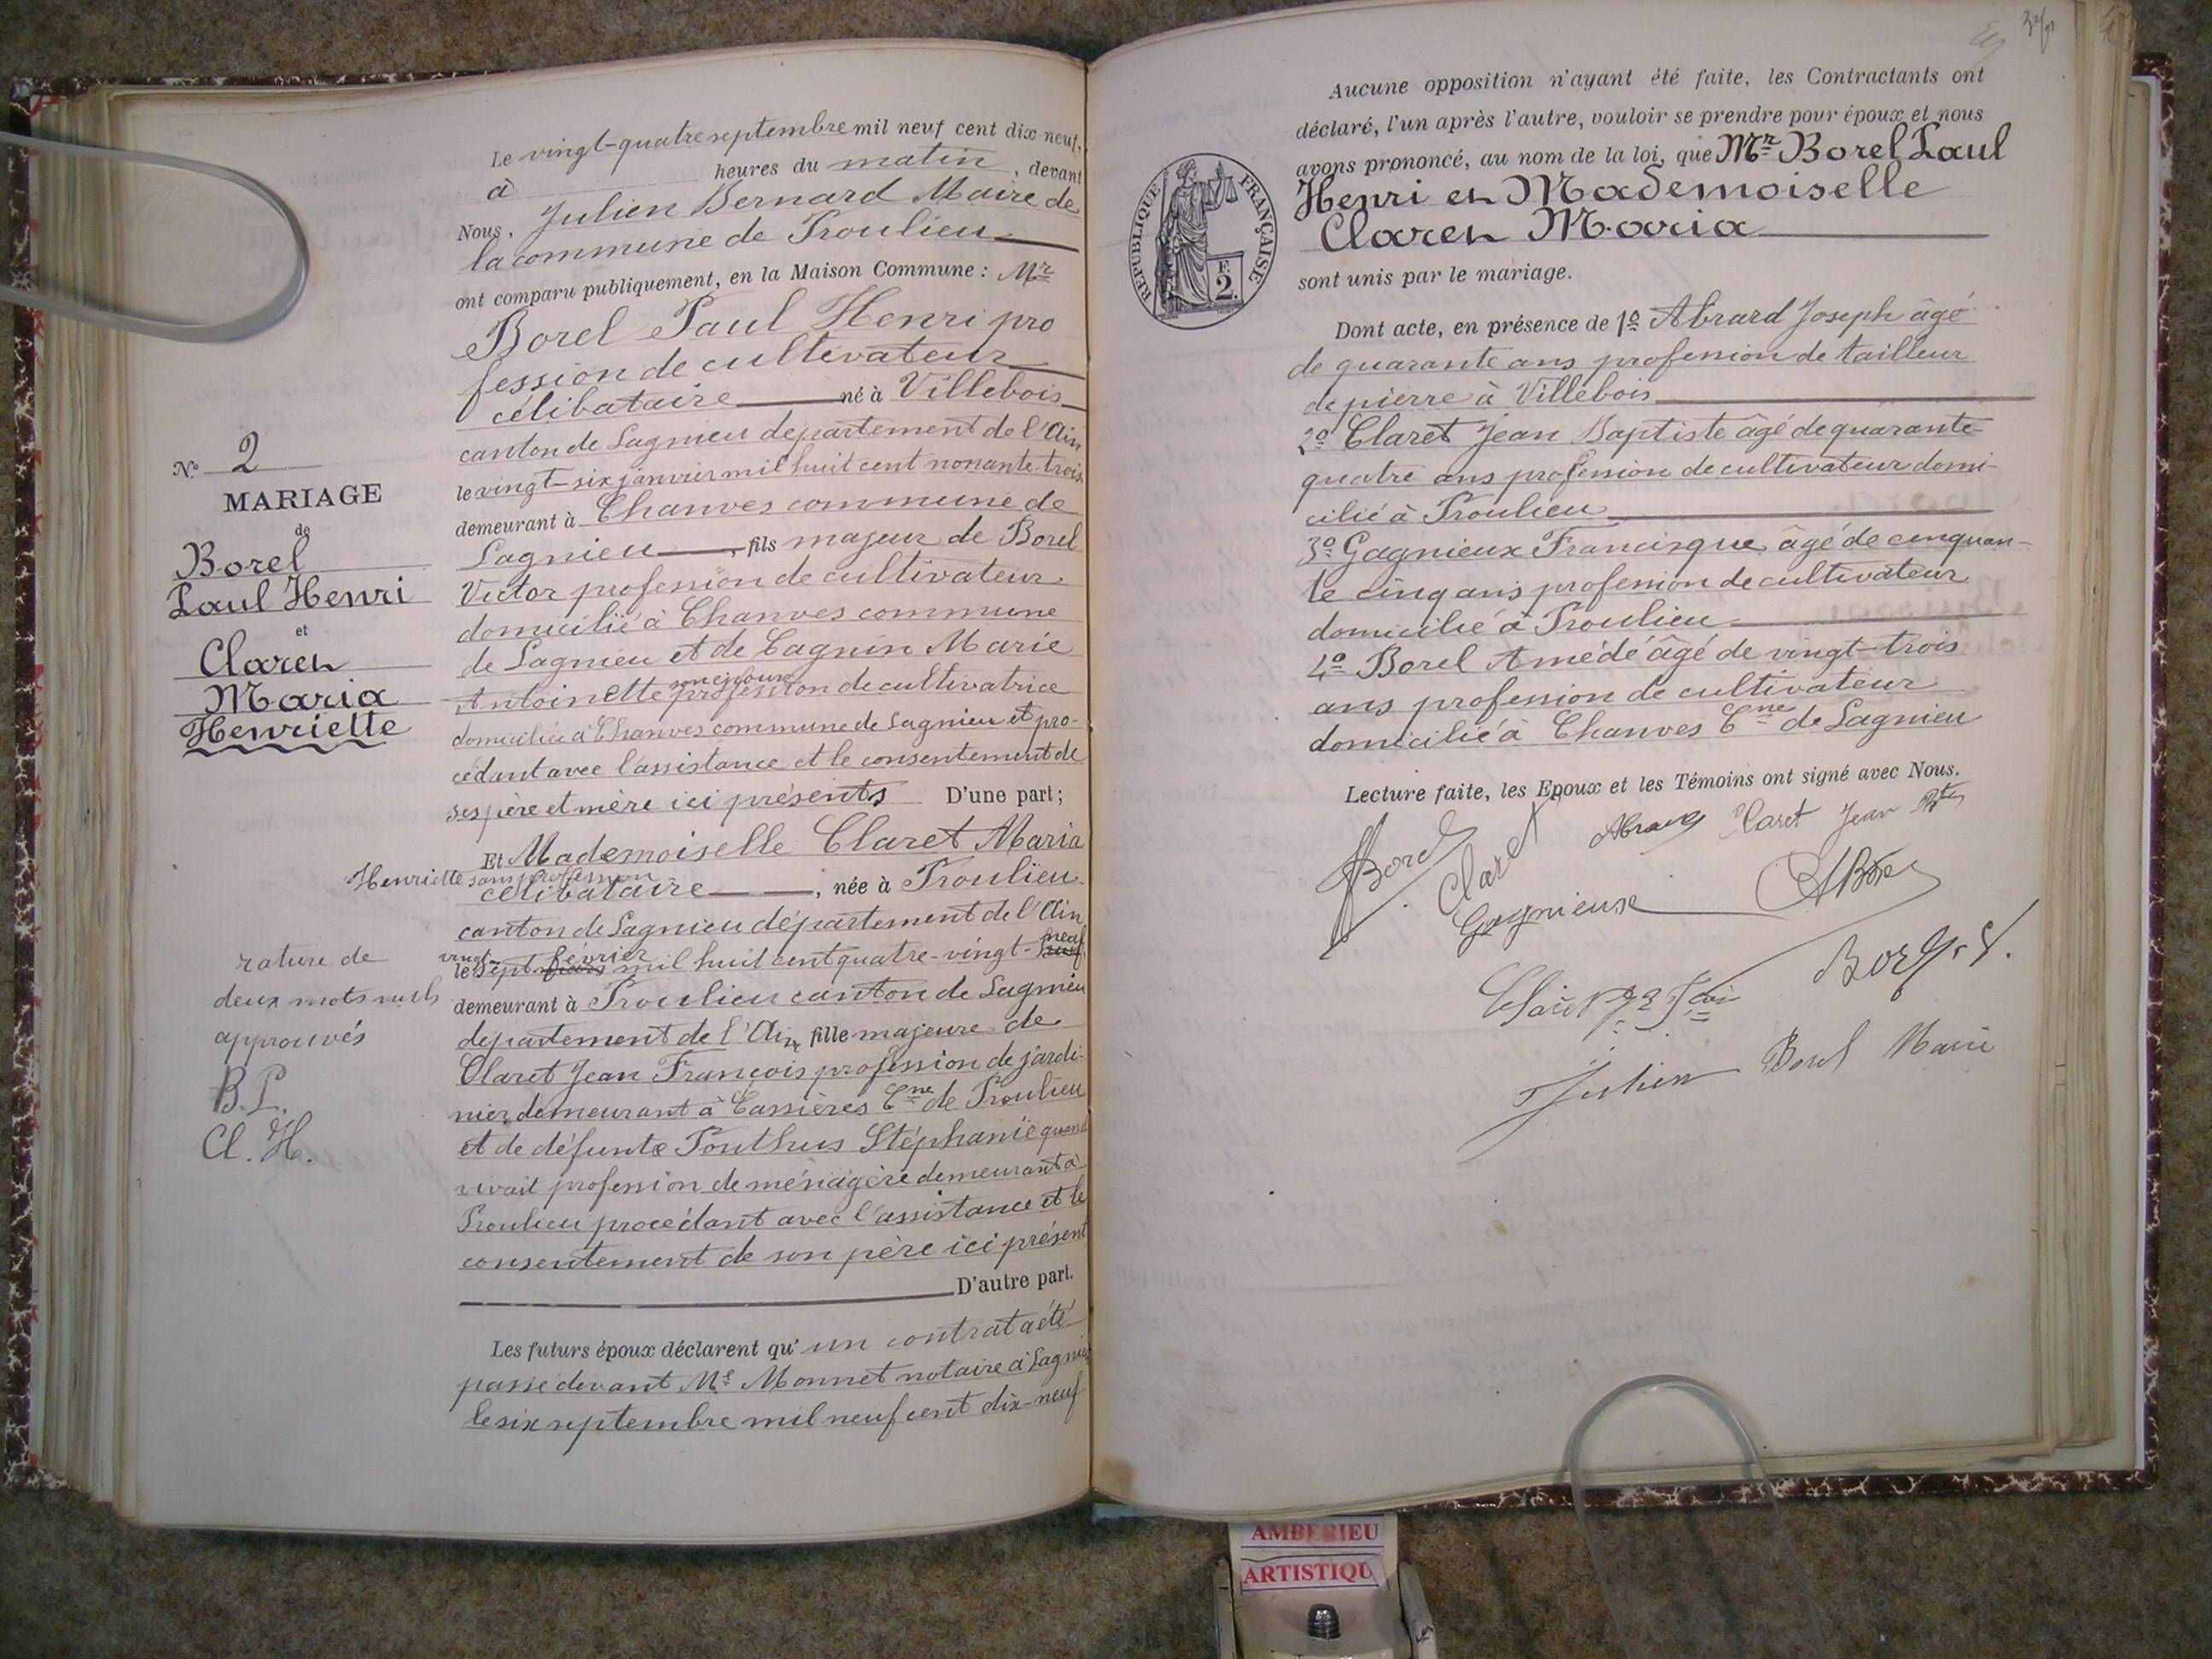 Le vingt-quatre septembre mil neuf cent dix-neuf,
à heures du matin, devant
Nous, Julien Bernard Maire de
la commune de Proulieu
ont comparu publiquement, en la Maison Commune : Mr
Borel Paul Henri pro
fession de cultivateur
célibataire né à Villebois
canton de Lagnieu département de l'Ain
le vingt-six janvier mil huit cent nonante-trois
demeurant à Chanves commune de
Lagnieu, fils majeur de Borel
Victor profession de cultivateur
domicilié à Chanves commune
de Lagnieu et de Cagnin Marie
son épouse
Antoinette profession de cultivatrice
domiciliée à Chanves commune de Lagnieu et pro-
cédant avec l'assistance et le consentement de
ses père et mère ici présents D'une part ;
Et Mademoiselle Claret Maria
Henriette sans profession
célibataire, née à Proulieu
canton de Lagnieu département de l'Ain
vingt- février neuf
le sept mil huit cent quatre-vingt-
demeurant à Proulieu canton de Lagnieu
département de l'Ain, fille majeure de
Claret Jean François profession de jardi-
nier demeurant à Cassières Cne de Proulieu
et de défunte Ponthus Stéphanie quand
vivait profession de ménagère demeurant à
Proulieu procédant avec l'assistance et le
consentement de son père ici présent
D'autre part.
Les futurs époux déclarent qu'un contrat a été
passé devant Me Monnet notaire à Lagnieu
le six septembre mil neuf cent dix-neuf
No 2
MARIAGE
de
Borel
Paul Henri
et
Claret
Maria
Henriette
rature de
deux mots nuls
approuvés
B.P.
Cl. H.
Aucune opposition n'ayant été faite, les Contractants ont
déclaré, l'un après l'autre, vouloir se prendre pour époux et nous
avons prononcé, au nom de la loi, que Mr Borel Paul
Henri et Mademoiselle
Claret Maria
sont unis par le mariage.
RÉPUBLIQUE FRANÇAISE
F.
2.
Dont acte, en présence de 1o Abrard Joseph âgé
de quarante ans profession de tailleur
de pierre à Villebois
2o Claret Jean Baptiste âgé de quarante-
quatre ans profession de cultivateur domi-
cilié à Proulieu
3o Gagnieux Francisque âgé de cinquan-
te cinq ans profession de cultivateur
domicilié à Proulieu
4o Borel Amédé âgé de vingt-trois
ans profession de cultivateur
domicilié à Chanves Cne de Lagnieu
Lecture faite, les Epoux et les Témoins ont signé avec Nous.
Borel
Claret
Abrard
Claret Jean Bte
Gagnieux
Julien
Borel Marie
AMBERIEU
ARTISTIQU